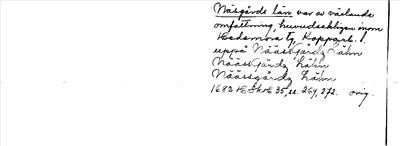 Näsgårds län var av växlande
omfattning, huvudsakligen inom
Hedemora tg, Kopparb. l.
uppå Nääss Gårdz Lähn
Nääss Gårdz Lähn
Näässgårdz Lähn
1682 35, 264, 272. orig.